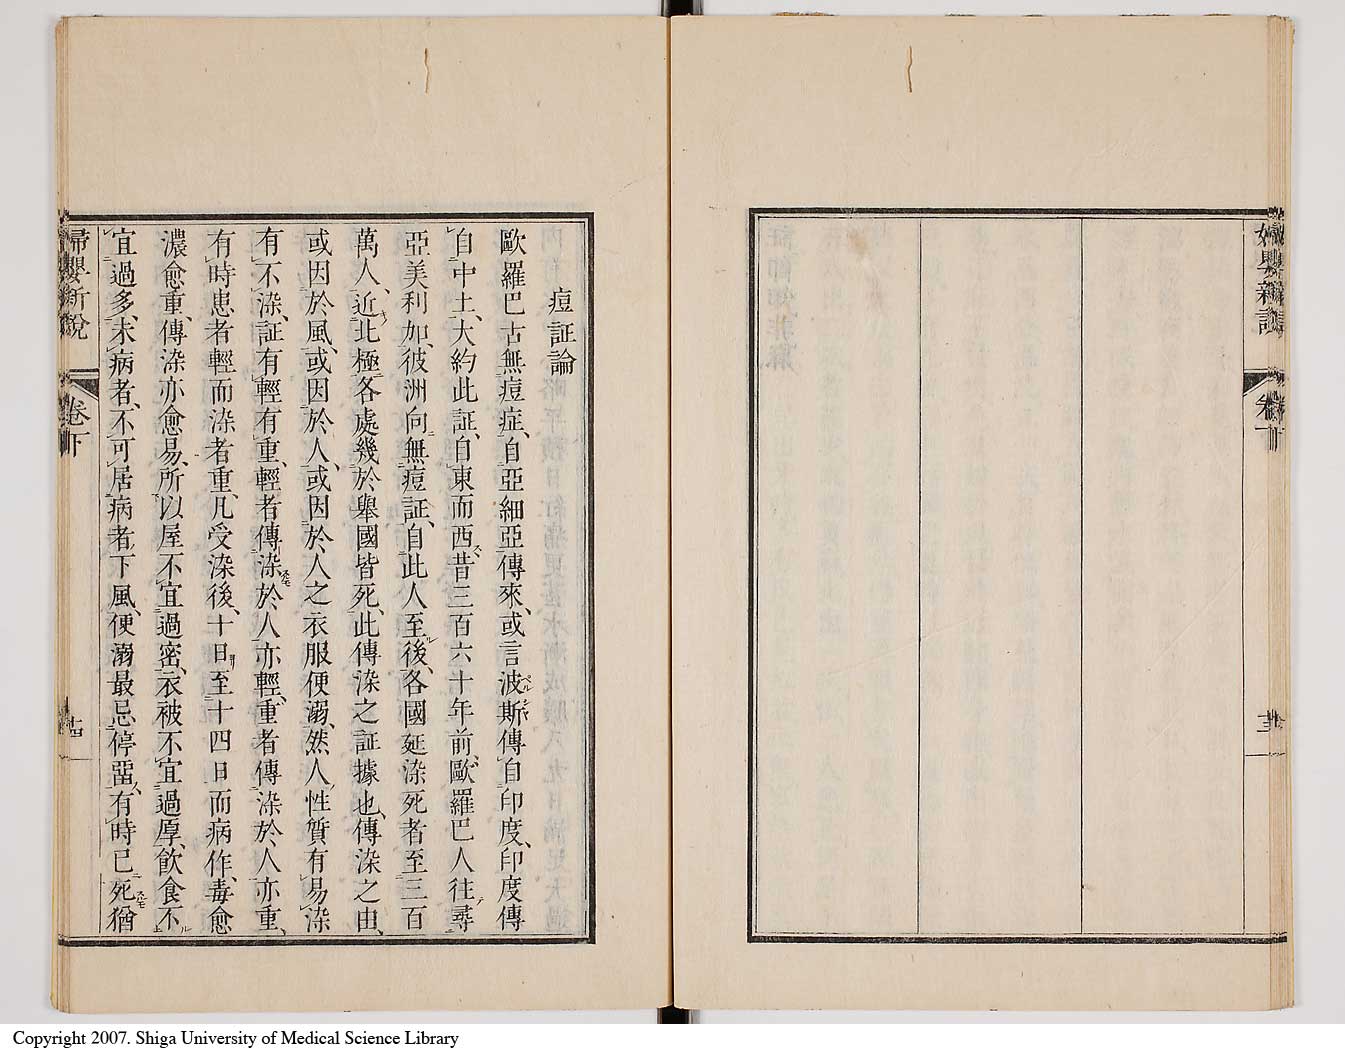 婦嬰新説
卷下
十三
痘証論
歐羅巴古無痘症、自亞細亞傳來、或言波斯傳自印度、印度傳
ペルシヤ
自中土、大約此証、自東而西、昔三百六十年前、歐羅巴人往尋
亞美利加、彼洲向無痘証、自此人至後、各國延染死者至三百
萬人、近北極各處幾於舉國皆死、此傳染之証據也、傳染之由、
或因於風、或因於人、或因於人之衣服便溺、然人性質有易染
有不染、証有輕有重、輕者傳染於人亦輕、重者傳染於人亦重、
有時患者輕而染者重、凡受染後、十日至十四日而病作、毒愈
濃愈重、傳染亦愈易、所以屋不宜過密、衣被不宜過厚、飲食不
宜過多、未病者、不可居病者下風、便溺最忌停畱、有時已死猶
婦嬰新說
卷下
十四
Copyright 2007. Shiga University of Medical Science Library